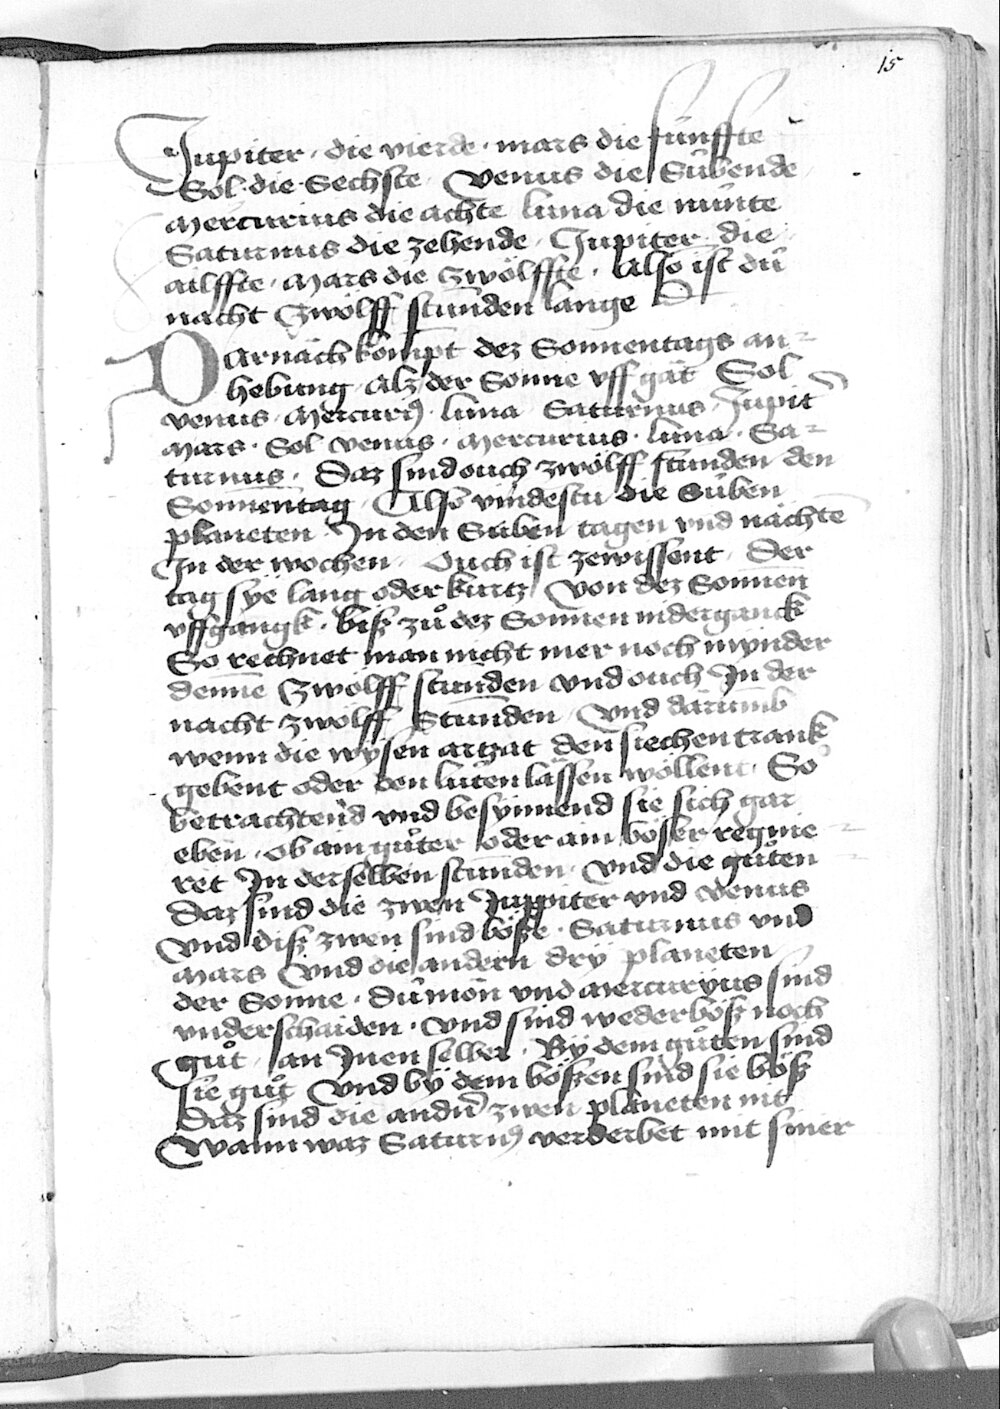 15
Jupiter · die vierde · mars die fünffte
Sol · die Sechste · Venus die Sübende
Mercurius die achte luna die nünte
Saturnus die zehende · Jupiter die
ailffte · Mars die zwölffte · Also ist dü
nacht zwölff stunden lange
Darnäch kompt dez Sonnentags an-
hebung · alz der Sonne vff gät Sol
venus · Mercurꝰ · luna Saturnus · Jupit̄
Mars · Sol venus · Mercurius · luna · Sa-
turnus · Daz sind ouch zwölff stunden den
Sonnentag · Also vindestu die Süben
planeten · In den Süben tagen vnd nächtē
In der wochen · Ouch ist zewissent · Der
tag sye lang oder kurtz von dez Sonnen
vffgangk · biß zů dez Sonnen nidergangk
So rechnet man nicht mer noch mynder
denne zwölff stunden vnd ouch In der
nacht zwölff Stunden vnd darumb
wenn die wysen artzat den siechen trank
gebent oder den lüten lässen wöllent · So
betrachtend vnd besynnend sie sich gar
eben · ob ain gůter oder ain böser regnie-
ret In derselben stunden · vnd die gůten
Daz sind die zwen Juppiter vnd venus
vnd diß zwen sind böße · Saturnus vnd
Mars vnd die andern dry planeten
der Sonne · dü mön vnd Mercuryus sind
vnderschaiden · vnd sind weder böß noch
gůt · an Inen selber · By dem gůten sind
sie gůt vnd by dem bößen sind sie böß
Daz sind die andn̄ zwen planeten nit
Wann waz Saturnꝰ verderbet mit siner